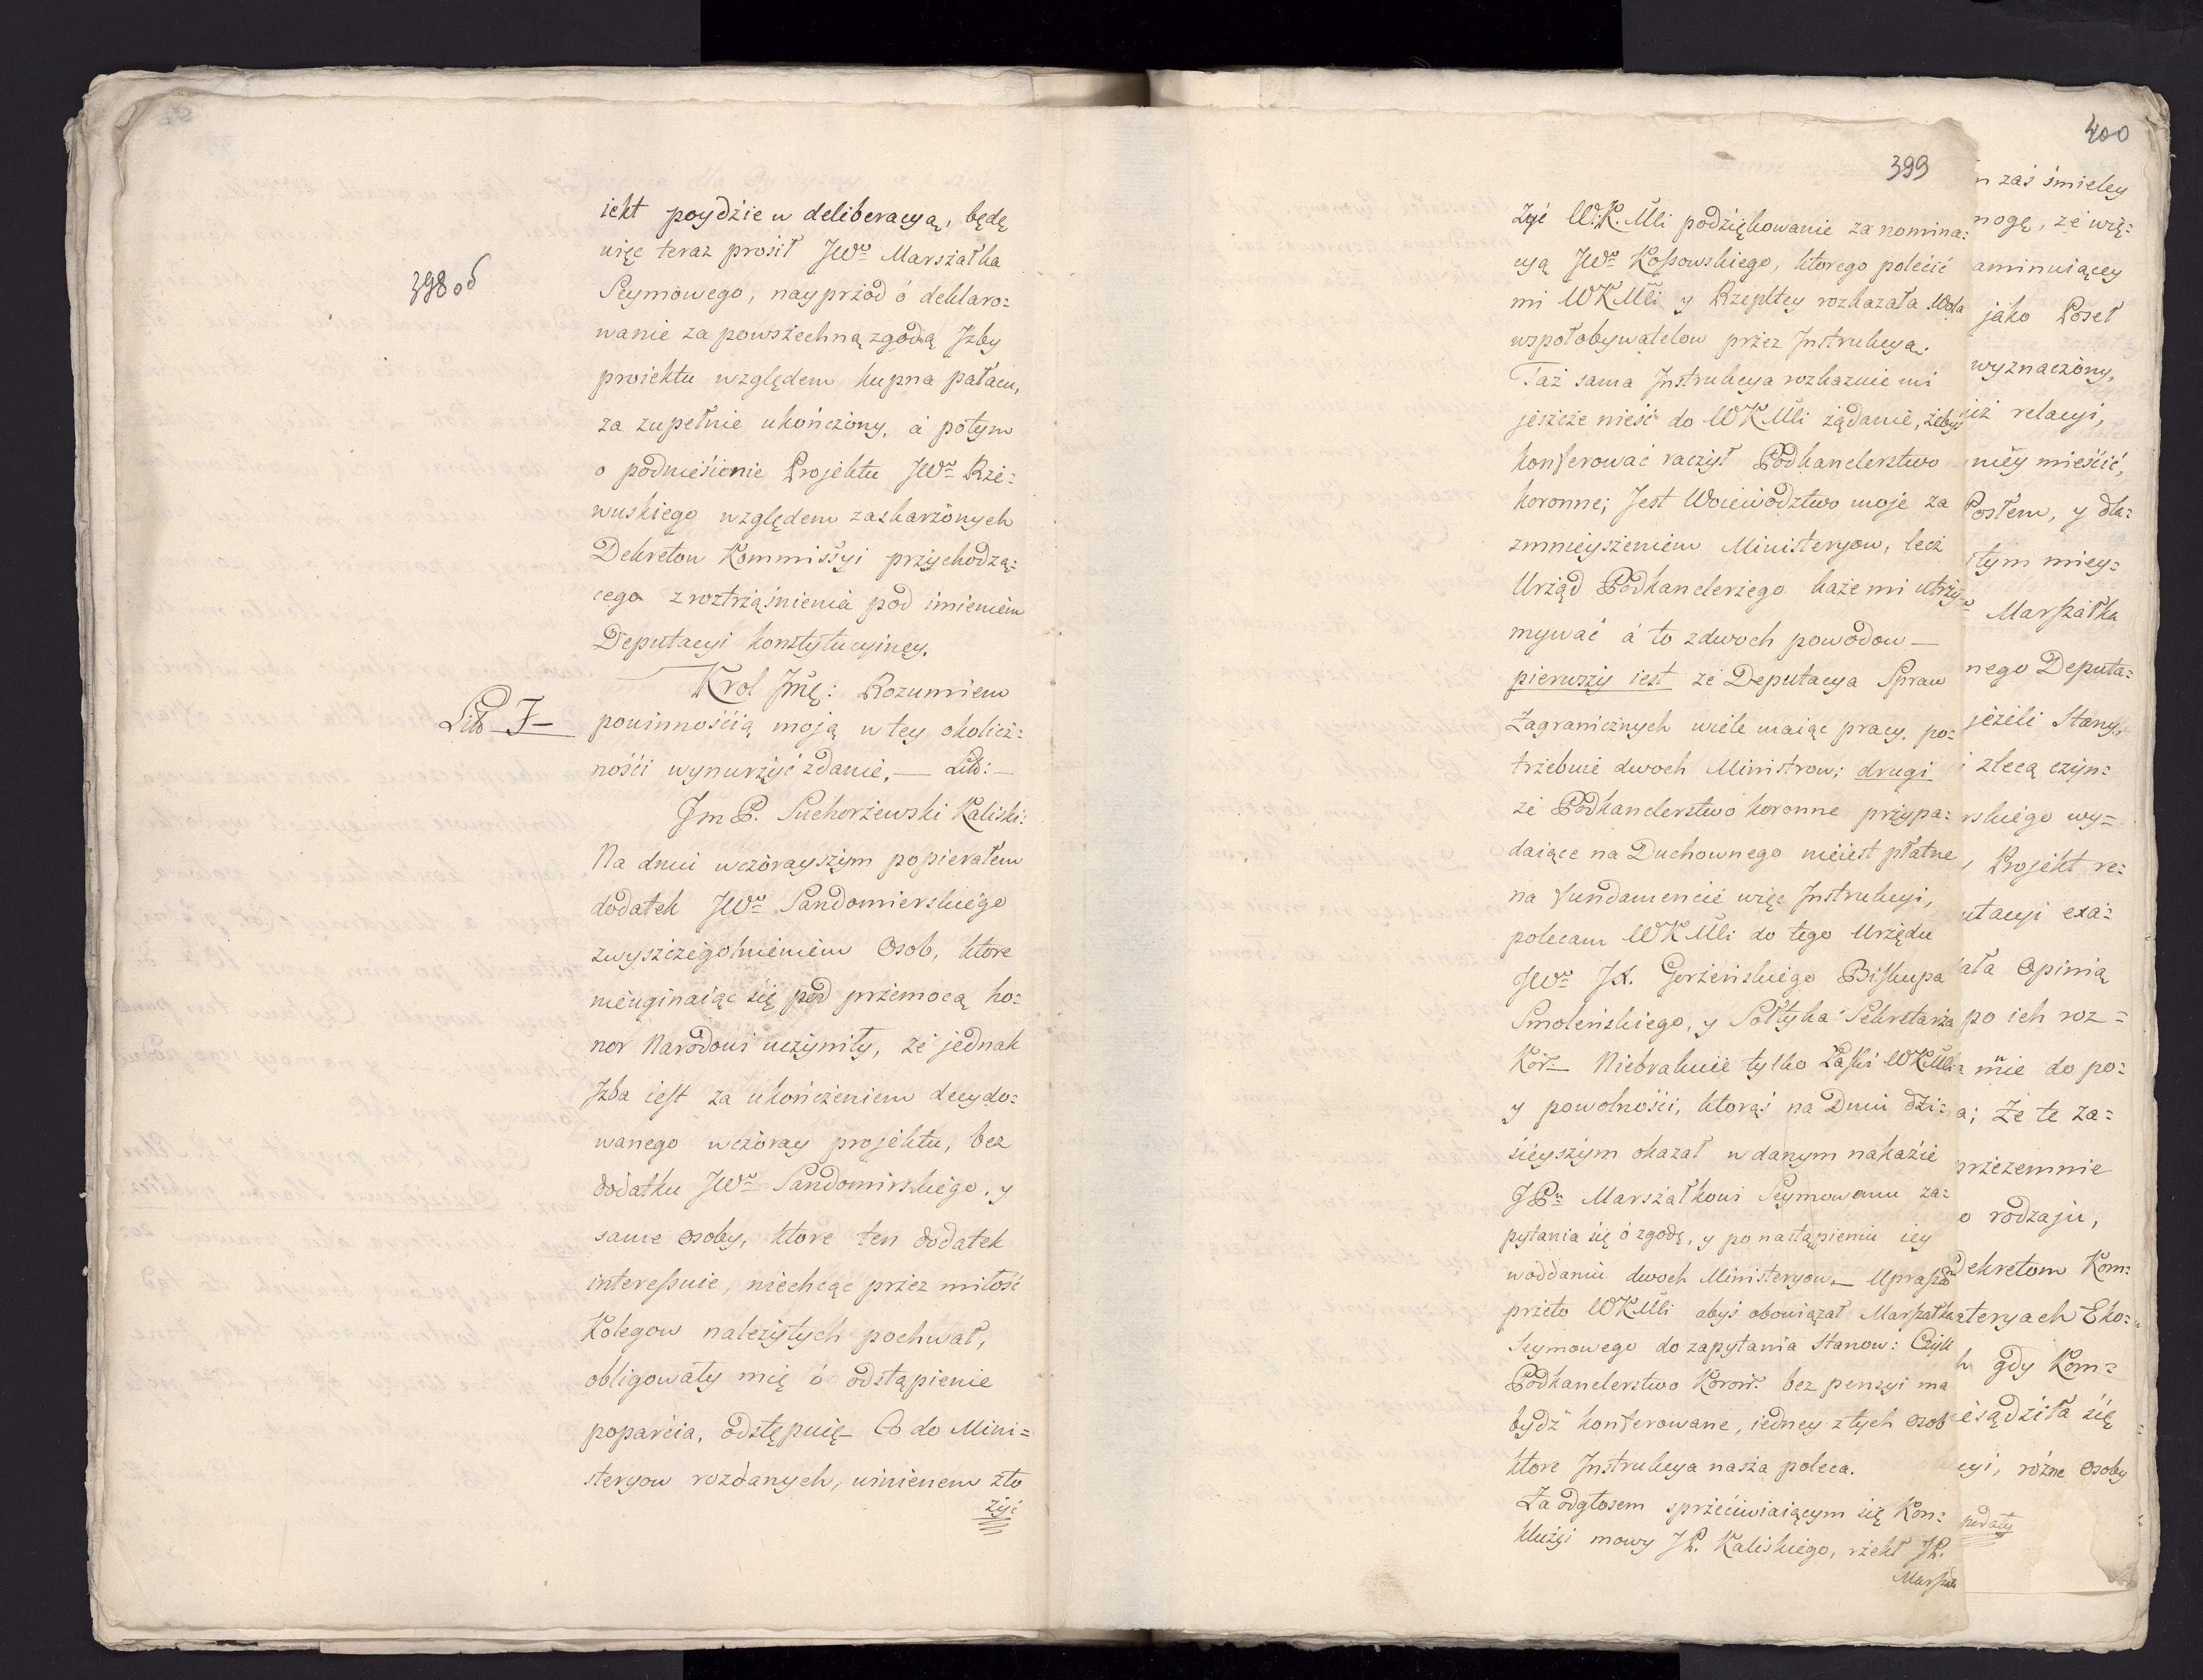 398 od
iekt poydzie w deliberacyą, będę
więc teraz prosił JWo Marszałka
Seymowego, nayprzod ó deklaro=
wanie za powszechną zgodą Jzby
proiektu względem kupna pałacu,
za zupełnie ukończony, á potym
o podniesienie Projektu JWo Rze=
wuskiego względem zaskarżonych
Dekretow Kommissyi przychodzą=
cego z roztrząśnienia pod imieniem
Deputacyi konstytucyiney.
Krol Jmć: Rozumiem
Litt J—
powinnością moją w tey okolicz=
ności wynurzyć zdanie, — Litt: —
Jm P. Suchorzewski Kaliski:
Na dniu wczorayszym popierałem
dodatek JWo Sandomierskiego
zwyszczegolnieniem Osob, ktore
nieuginaiąc się pod przemocą ho=
nor Narodowi uczyniły, że jednak
Jzba iest za ukończeniem decydo=
wanego wczoray projektu, bez
dodatku JWo Sandomirskiego, y
same osoby, ktore ten dodatek
interessuie, niechcąc przez miłość
Kolegow należytych pochwał,
obligowały mię ó odstąpienie
poparcia, odstępuię— Co do Mini=
steryow rozdanych, winienem zło
żyć
399
żyć W.K.Mci podziękowanie za nomina=
cyą JWo Kossowskiego, ktorego polecić
mi WKMci y Rzepltey rozkazała Wola
wspołobywatelow przez Jnstrukcyą.
Taż sama Jnstrukcya rozkazuie mi
jeszcze nieść do WKMci żądanie, żebyś
konferować raczył Podkanclerstwo
koronne; Jest Woiewodztwo moje za
zmnieyszeniem Ministeryow, lecz
Urząd Podkanclerzego każe mi utrzy=
mywać á to z dwoch powodow —
pierwszy iest że Deputacya Spraw
Zagranicznych wiele maiąc pracy, po=
trzebuie dwoch Ministrow; drugi
że Podkanclerstwo koronne przypa=
daiące na Duchownego nieiest płatne
na fundamencie więc Jnstrukcyi,
polecam WKMci do tego Urzędu
JWo JX. Gorzeńskiego Biskupa
Smoleńskiego, y Sołtyka Sekretarza
Kor. Niebrakuie tylko Łaski WKMci
y powolności, ktorąś na Dniu dzi=
sieyszym okazał w danym nakazie
JPu Marszałkowi Seymowemu za=
pytania się ó zgodę, y po nastąpieniu iey
woddaniu dwoch Ministeryow— Upraszam
przeto WKMci abyś obowiązał Marszałka
Seymowego do zapytania Stanow: Czyli
Podkanclerstwo Koron. bez pensyi ma
bydź konferowane, iedney z tych osob
ktore Jnstrukcya nasza poleca.
Za odgłosem sprzeciwiaiącym się Kon=
kluzyi mowy JP. Kaliskiego, rzekł JP.
Marszał
400
m zaś śmieley
mogę, że wię=
aminuiącey
jako Poseł
wyznaczony,
iż relacyi,
niey mieścić,
Posłem, y dla=
tym miey=
Marszałka
nego Deputa=
jeżeli Stany,
i zlecą czyn=
rskiego wy=
, Projekt re=
utacyi exa=
ała Opinią
po ich roz=
mie do po=
a; Że te za=
przezemnie
o rodzaju,
Dekretow Kom=
ateryach Eko=
h gdy Kom=
esądziła się
cyi, rożne Osoby
podały